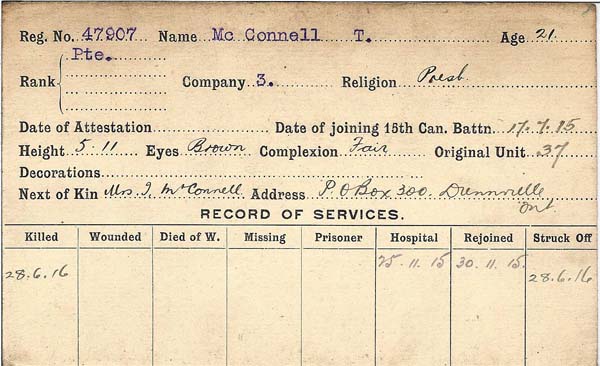 Reg. No. 47907 Name Mc Connell T. Age 21
Rank Pte. Company 3. Religion Presb.
Date of Attestation Date of joining 15th Can. Battn. 17.7.15
Height 5.11 Eyes Brown Complexion Fair Original Unit 37
Decorations
Next of Kin Mrs. J. McConnell Address P.O Box 300. Dunnville Ont
RECORD OF SERVICES.
Killed Wounded Died of W. Missing Prisoner Hospital Rejoined Struck Off
28.6.16 25.11.15 30.11.15. 28.6.16